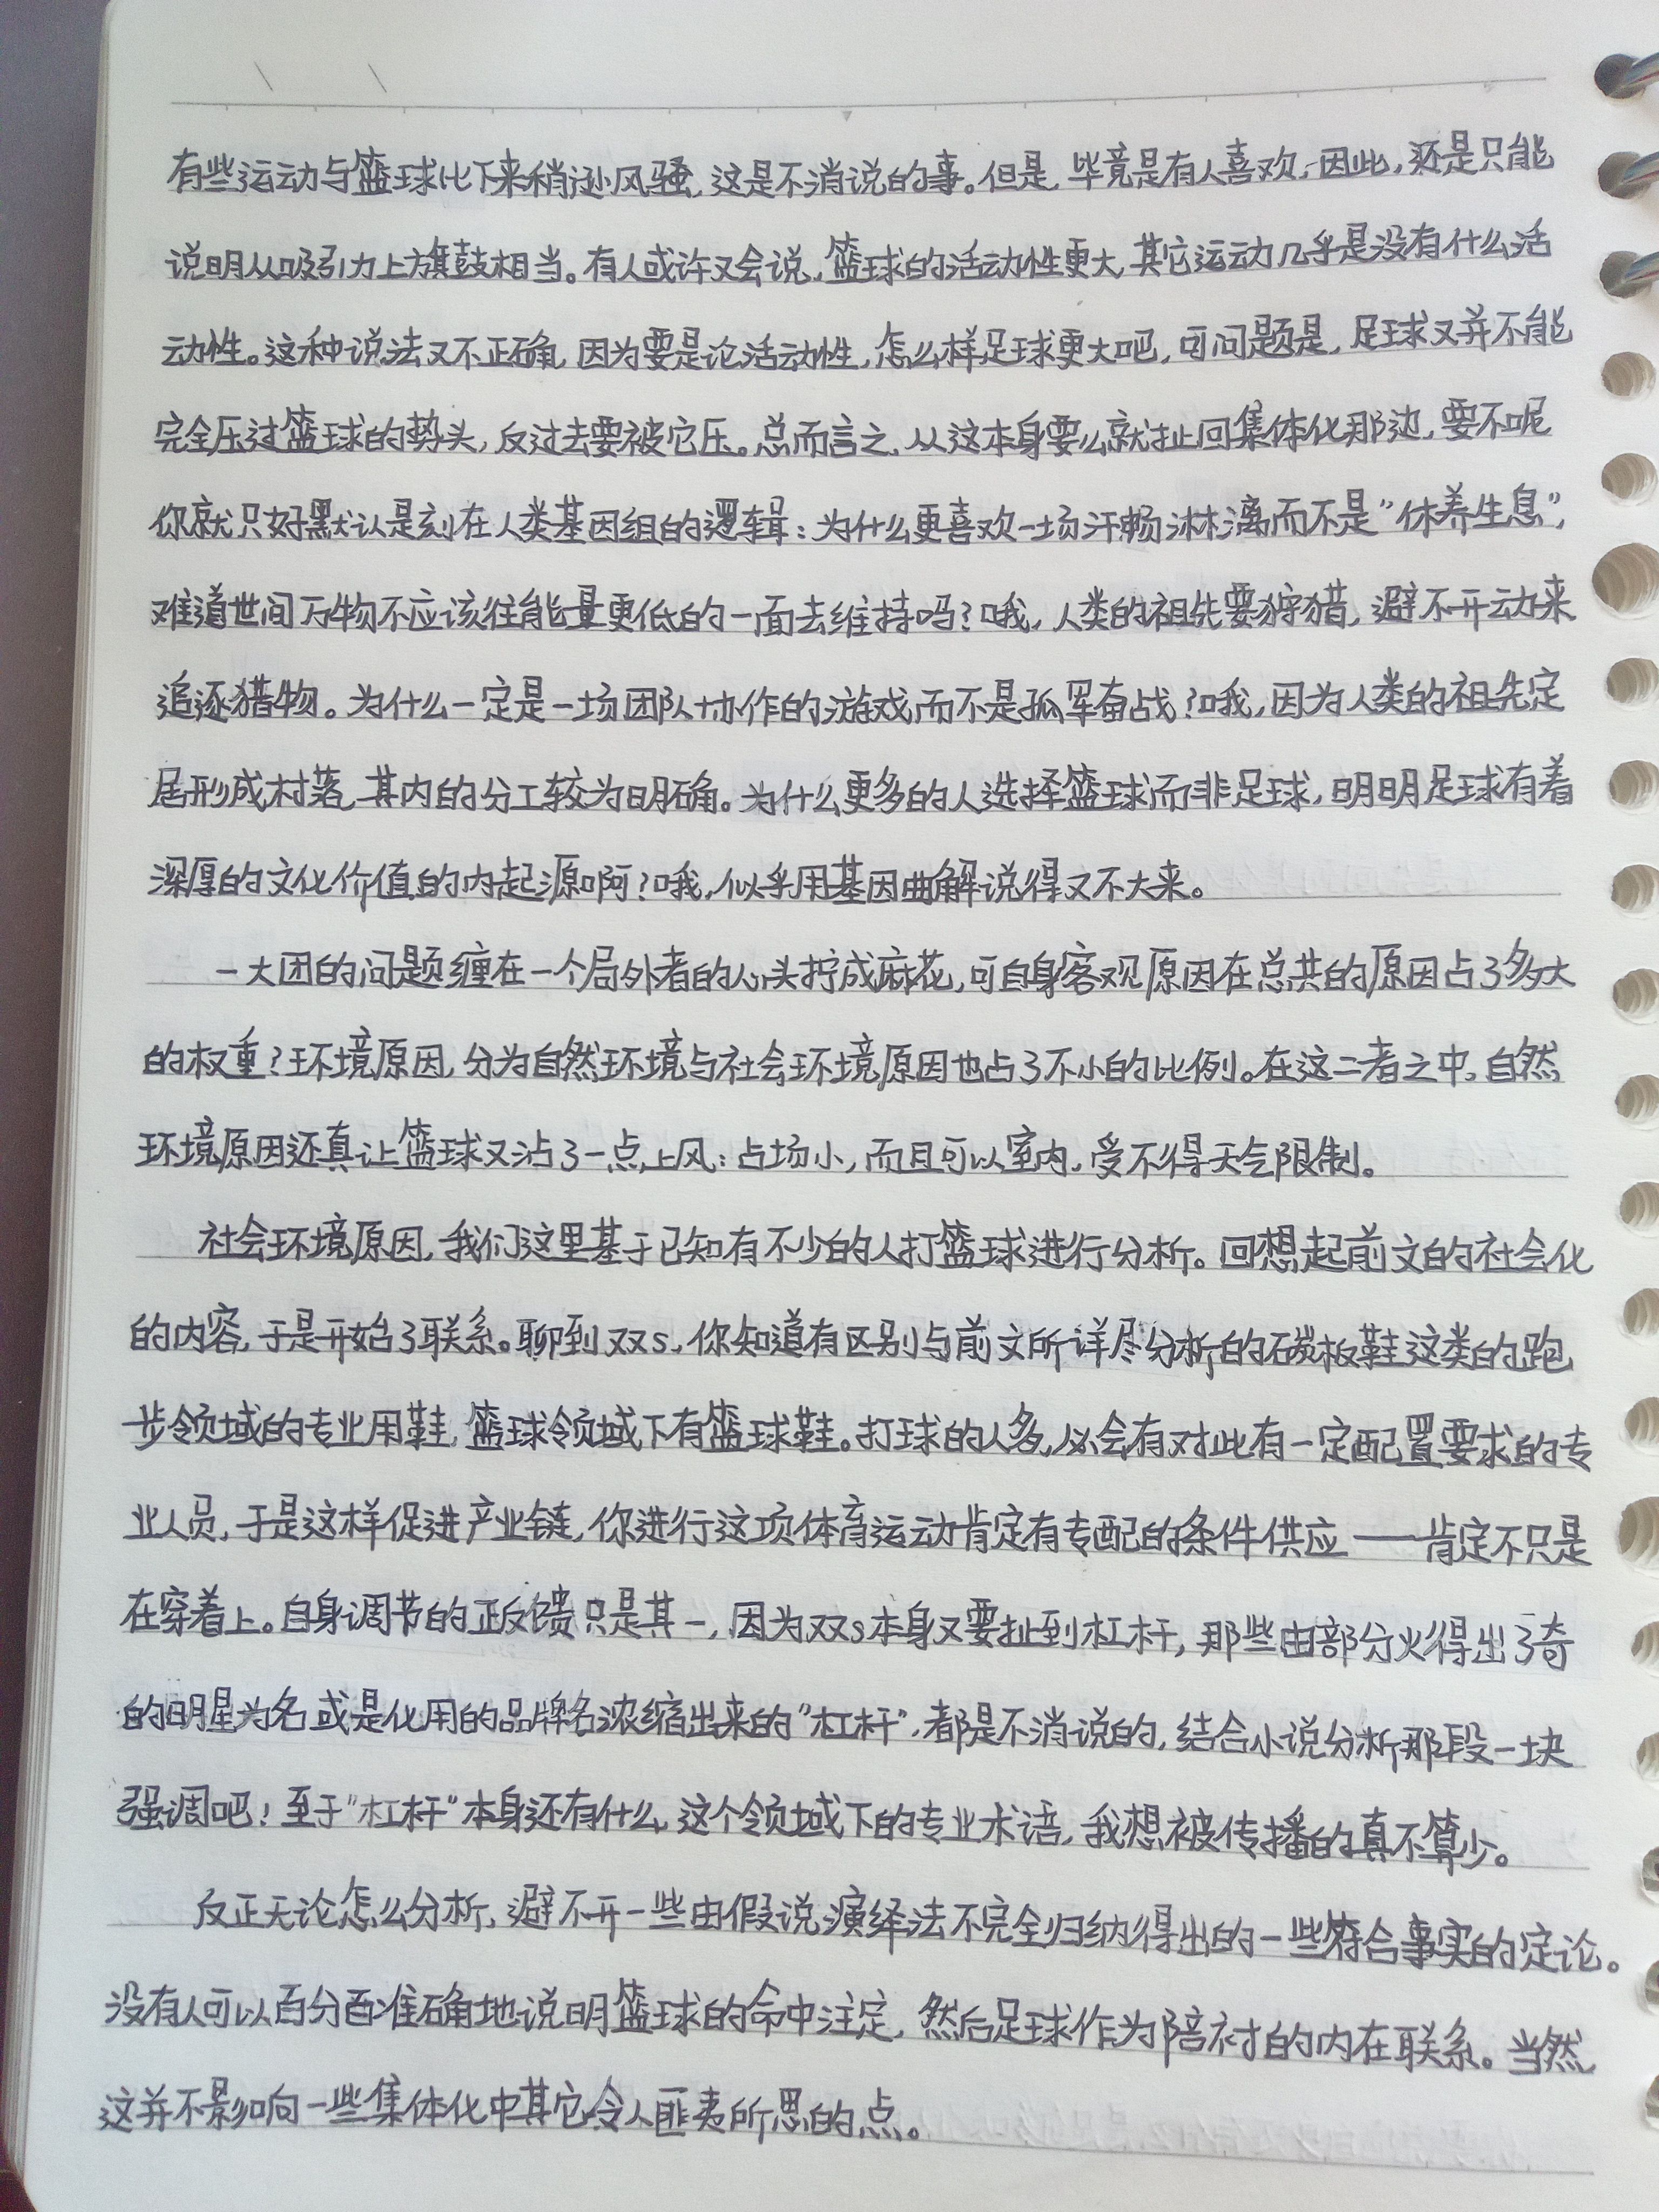 有些运动与篮球比下来稍逊风骚，这是不消说的事。但是，毕竟是有人喜欢，因此，还是只能
说明从吸引力上旗鼓相当。有人或许又会说，篮球的活动性更大，其它运动几乎是没有什么活
动性。这种说法又不正确，因为要是论活动性，怎么样足球更大吧，可问题是，足球又并不能
完全压过篮球的势头，反过去要被它压。总而言之，从这本身要么就扯回集体化那边，要不呢
你就只好默认是刻在人类基因组的逻辑：为什么更喜欢一场汗畅淋漓而不是“休养生息”，
难道世间万物不应该往能量更低的一面去维持吗？哦，人类的祖先要狩猎，避不开动来
追逐猎物。为什么一定是一场团队协作的游戏而不是孤军奋战？哦，因为人类的祖先定
居形成村落，其内的分工较为明确。为什么更多的人选择篮球而非足球，明明足球有着
深厚的文化价值的内起源啊？哦，似乎用基因曲解说得又不大来。
一大团的问题缠在一个局外者的心头拧成麻花，可自身客观原因在总共的原因占了多大
的权重？环境原因，分为自然环境与社会环境原因也占了不小的比例。在这二者之中，自然
环境原因还真让篮球又沾了一点上风：占场小，而且可以室内，受不得天气限制。
社会环境原因，我们这里基于已知有不少的人打篮球进行分析。回想起前文的社会化
的内容，于是开始了联系。聊到双s，你知道有区别与前文所详尽分析的碳板鞋这类的跑
步领域的专业用鞋，篮球领域下有篮球鞋。打球的人多，必会有对此有一定配置要求的专
业人员，于是这样促进产业链，你进行这项体育运动肯定有专配的条件供应——肯定不只是
在穿着上。自身调节的正反馈只是其一，因为双s本身又要扯到杠杆，那些由部分火得出了奇
的明星为名或是化用的品牌名浓缩出来的“杠杆”，都是不消说的，结合小说分析那段一块
强调吧！至于“杠杆”本身还有什么，这个领域下的专业术语，我想被传播的真不算少。
反正无论怎么分析，避不开一些由假说演绎法不完全归纳得出的一些符合事实的定论。
没有人可以百分百准确地说明篮球的命中注定，然后足球作为陪衬的内在联系。当然
这并不影响一些集体化中其它令人匪夷所思的点。